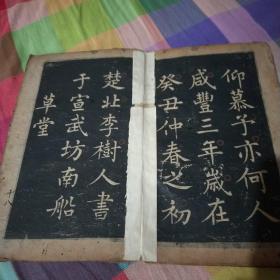 仰慕予亦何人
咸豐三年歲在
癸丑仲春之初
楚北李樹人書
于宣武坊南船
草堂
十八